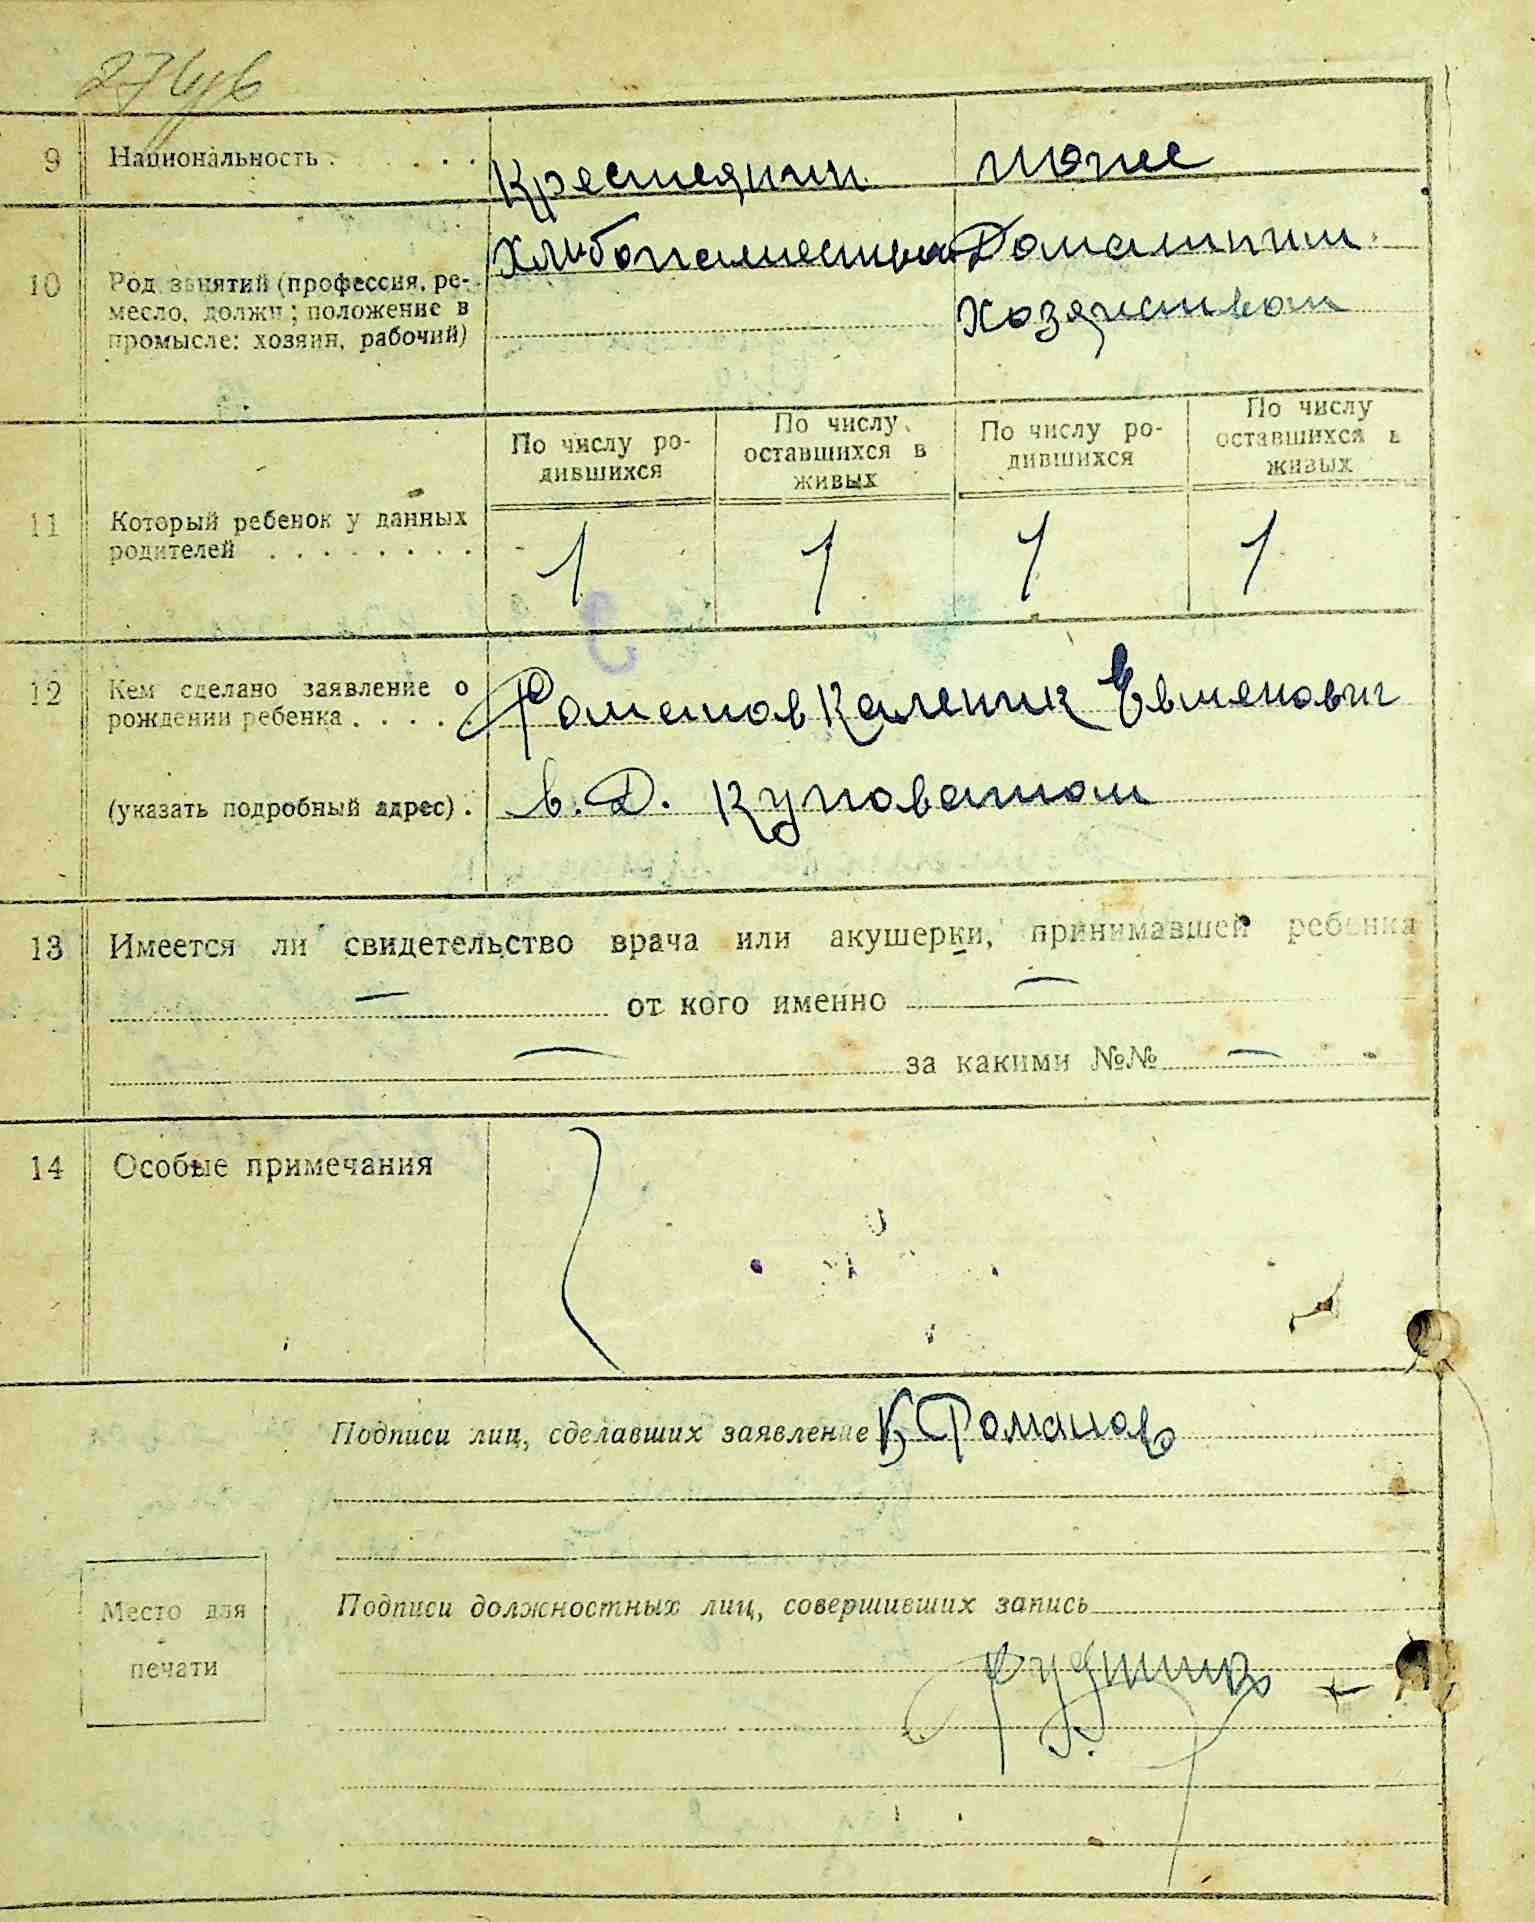 9 Национальность . . . . . Крестеянин тоже
Хлибопашества Домашним
10 Род занятий (профессия, ре- Хозяиством
месло, должн; положение в
промысле: хозяин, рабочий)
По числу ро- По числу По числу ро- По числу
дившихся оставшихся в дившихся оставшихся в
живых живых
11 Который ребенок у данных
родителей . . . . . . . . 1 1 1 1
12 Кем сделано заявление о
рождении ребенка . . . . . Романов Каленик Евменович
(указать подробный адрес) . в. Д. Куповатом
13 Имеется ли свидетельство врача или акушерки, принимавшей ребенка
— от кого именно —
— за какими №№ —
14 Особые примечания
Подписи лиц, сделавших заявление К Романов
Подписи должностных лиц, совершивших запись
Место для
печати
Рудник